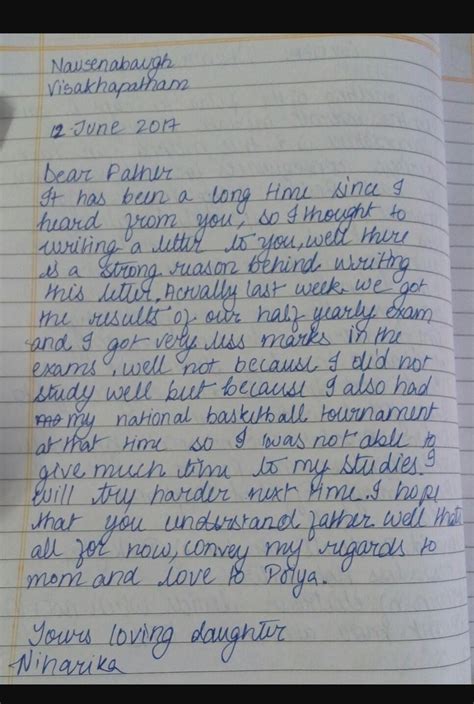 Nausenabaugh
Visakhapatnam
12 June 2017
Dear Father
It has been a long time since I
heard from you, so I thought to
writing a letter to you, well there
is a strong reason behind writing
this letter. Actually last week we got
the results of our half yearly exam
and I got very less marks in the
exams, well not because I did not
study well but because I also had
my national basketball tournament
at that time so I was not able to
give much time to my studies. I
will try harder next time. I hope
that you understand father. Well thats
all for now, convey my regards to
mom and love to Polya.
Yours loving daughter
Niharika